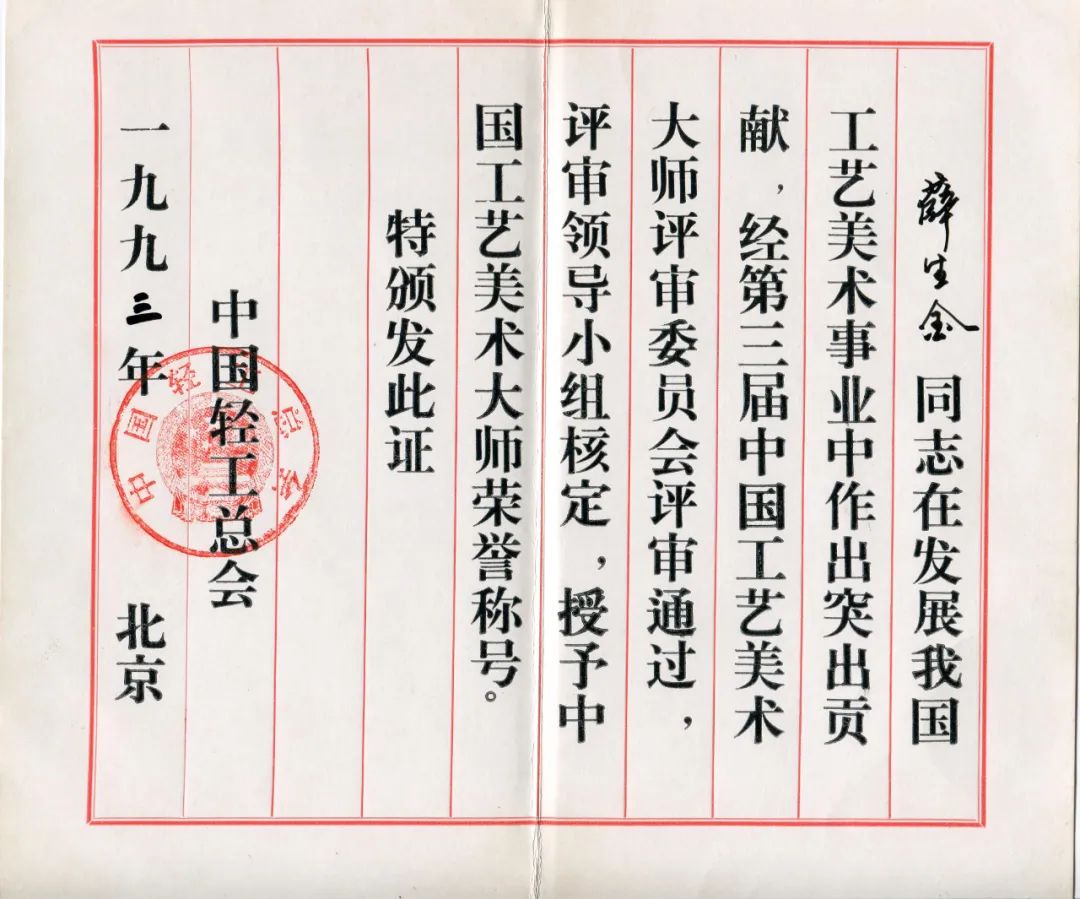 薛生金同志在发展我国
工艺美术事业中作出突出贡
献，经第三届中国工艺美术
大师评审委员会评审通过，
评审领导小组核定，授予中
国工艺美术大师荣誉称号。
特颁发此证
中国轻工总会
一九九三年 北京
中国轻工总会